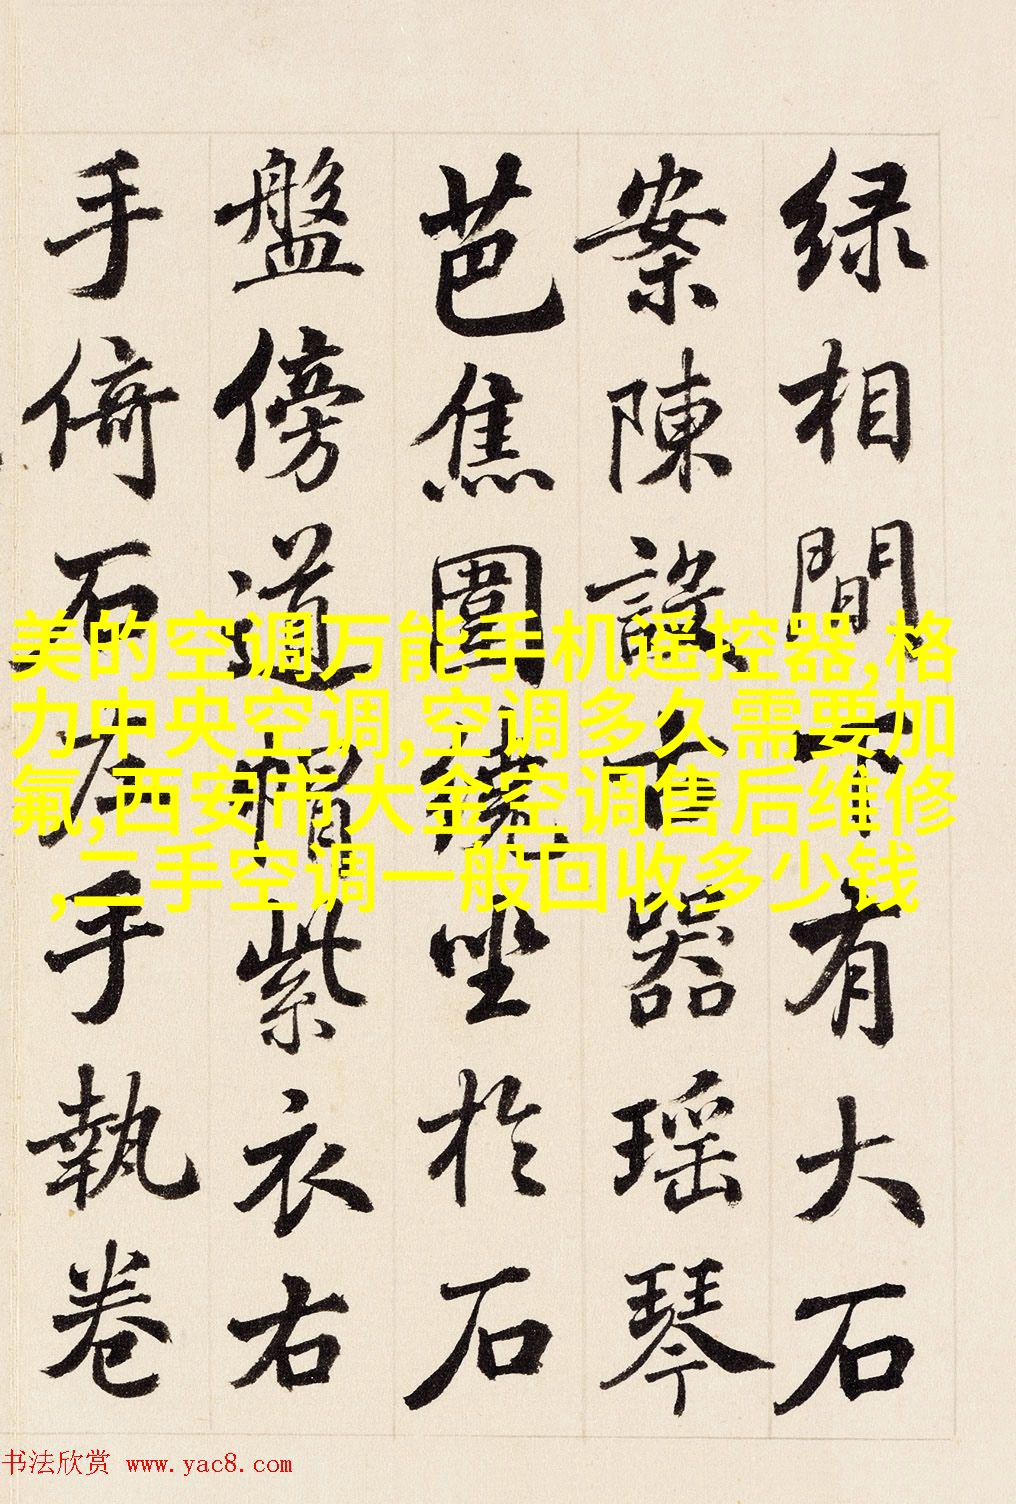 绿相間下有大石
案陳設古器瑶琴
芭焦圍繞坐於石
盤傍道帽紫衣右
手倚石左手執卷
美的空调万能手机遥控器,格
力中央空调,空调多久需要加
氟,西安市大金空调售后维修
,二手空调一般回收多少钱
书法欣赏 www.yac8.com